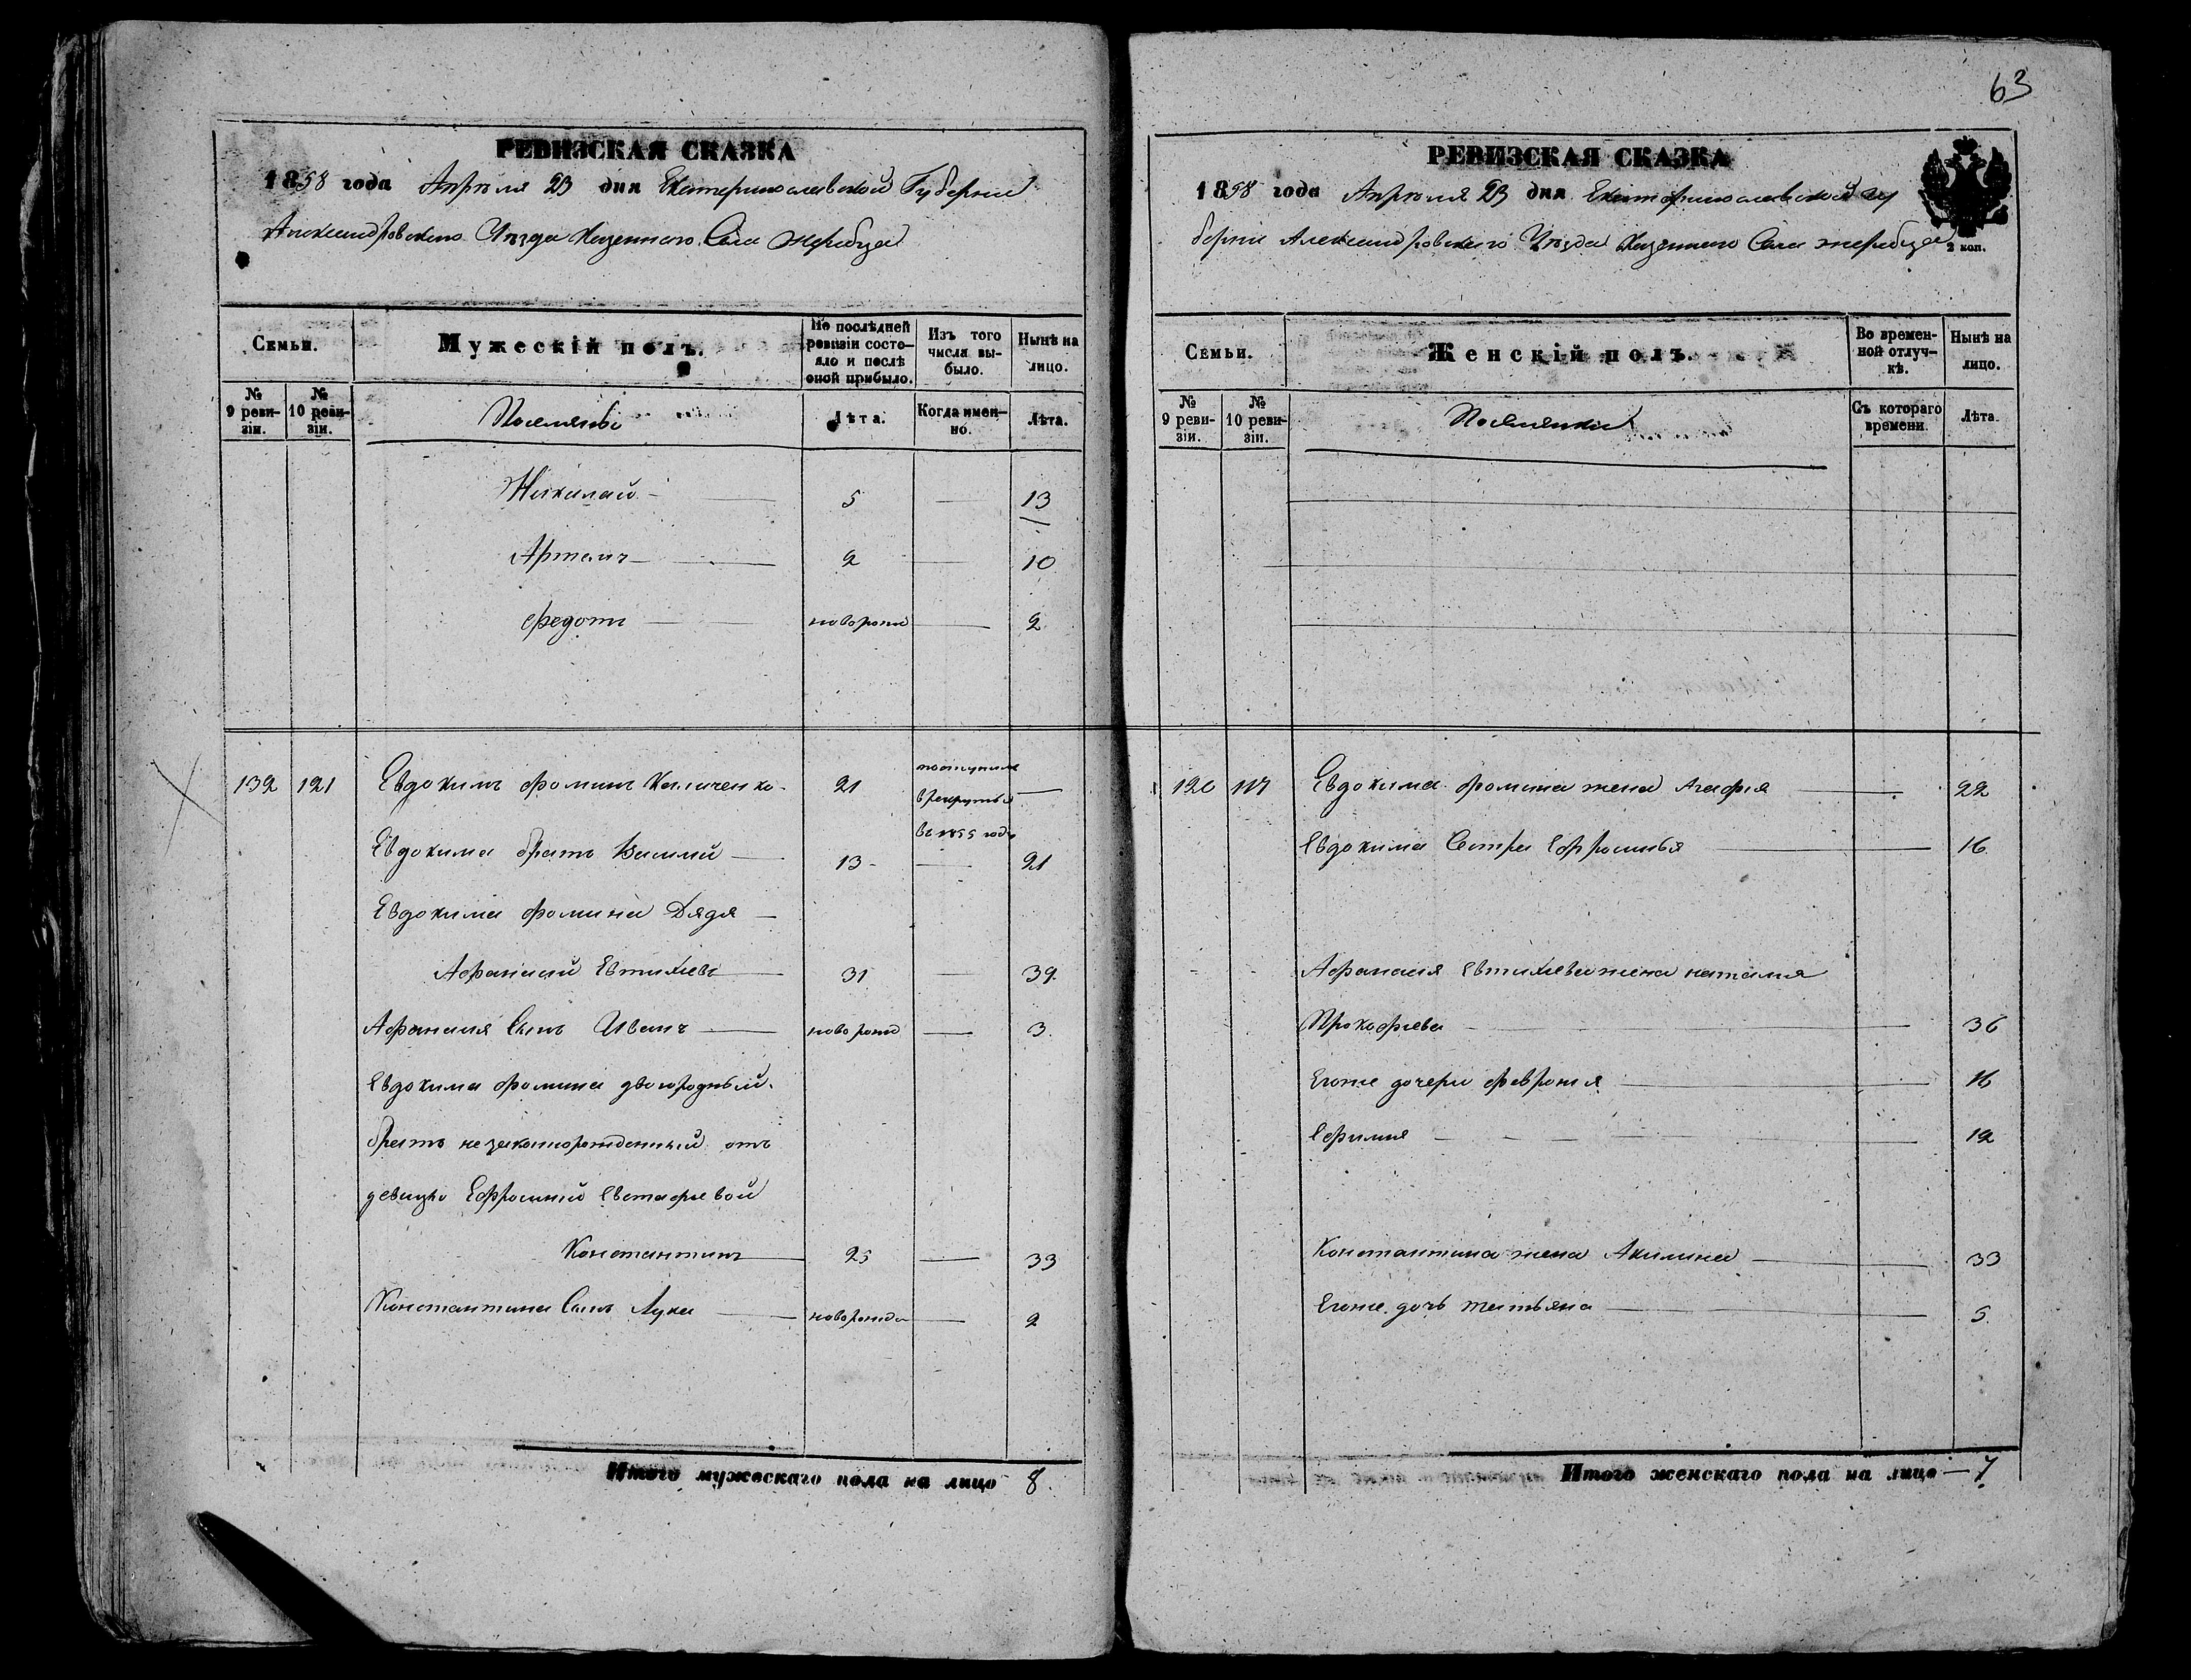 63
РЕВИЗСКАЯ СКАЗКА
1858 года Апреля 23 дня Екатеринославской Губернии
Александровского Уезда Казенного Села Жеребца
Семьи.
Мужескій полъ.
По послѣдней ревизіи состо-
яло и послѣ
оной прибыло.
Изъ того
числа вы-
было.
Нынѣ на
лицо.
№
9 реви-
зіи.
№
10 реви-
зіи.
Поселяне
Лѣта.
Когда имен-
но.
Лѣта.
Николай 5 — 13
Артемъ 2 — 10
Федотъ новорожд — 2
132 121 Евдокимъ Фоминъ Каличенко 21 поступилъ
в рекруты
въ 1855 году —
Евдокима братъ Василий 13 — 21
Евдокима Фомина Дядя —
Афанасий Евтихиевъ 31 — 39
Афанасия Сынъ Иванъ новорожд — 3
Евдокима Фомина двоюродный
братъ незаконорожденный отъ
девицы Ефросиньи Евстафьевой
Константинъ 25 — 33
Константина Сынъ Лука новорожде — 2
Итого мужескаго пола на лицо 8.
РЕВИЗСКАЯ СКАЗКА
1858 года Апреля 23 дня Екатеринославской Гу
бернии Александровского Уезда Казенного Села Жеребца
2 коп.
Семьи.
Женскій полъ.
Во времен-
ной отлуч-
кѣ.
Нынѣ на
лицо.
№
9 реви-
зіи.
№
10 реви-
зіи.
Поселянки
Съ котораго
времени.
Лѣта.
120 117 Евдокима Фомина жена Агафия — 22
Евдокима Сестра Ефросинья — 16
Афанасия Евтихиева жена Наталия
Прокофьева — 36
Егоже дочери Феврония — 16
Ефимия — 12
Константина жена Акилина — 33
Егоже дочь Татьяна — 5
Итого женскаго пола на лицо — 7